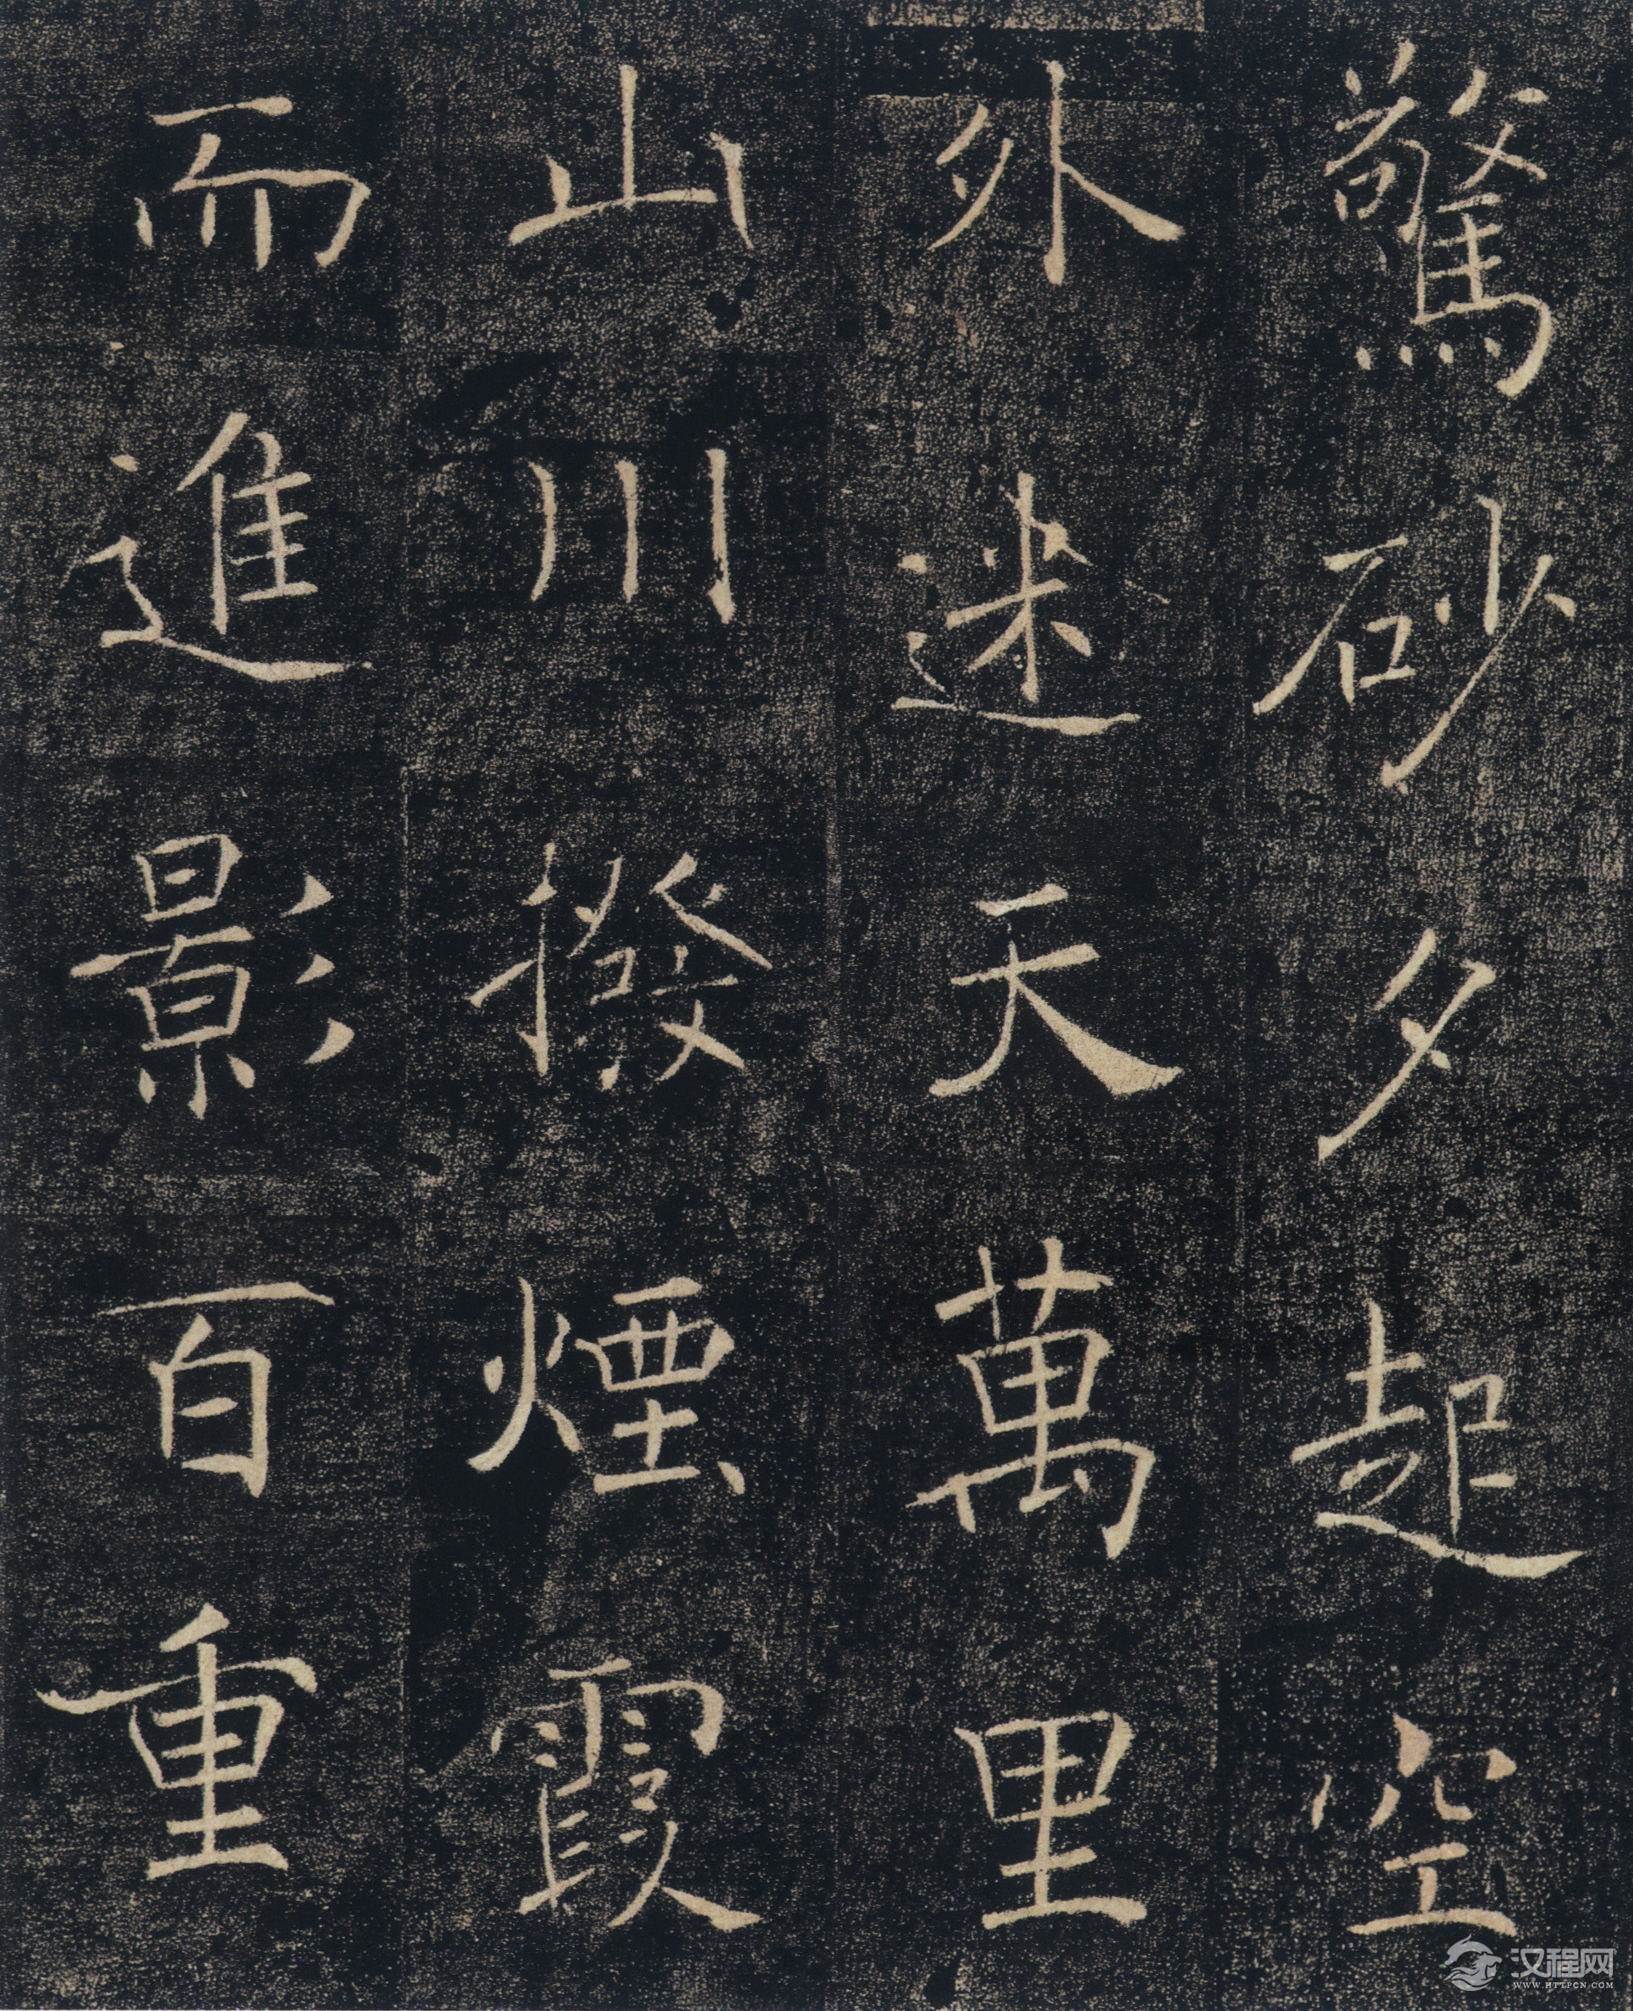 驚砂夕起空
外迷天萬里
山川撥煙霞
而進影百重
汉程网
WWW.HTTPCN.COM